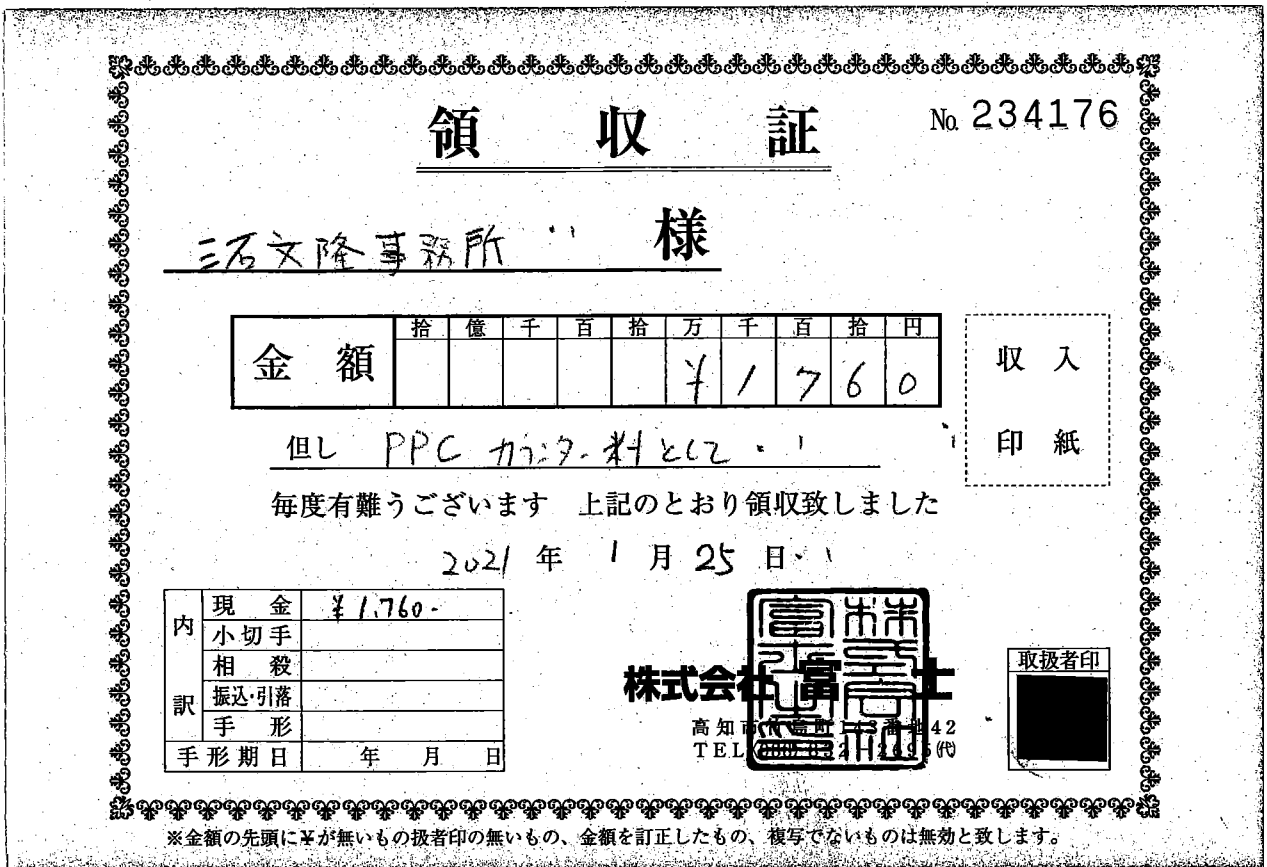 領収証
No. 234176
三石文隆事務所 様
金額 拾 億 千 百 拾 万 千 百 拾 円
¥1760
収入
印紙
但し PPC カウンター料として
毎度有難うございます 上記のとおり領収致しました
2021年 1月25日
内訳
現金 ¥1,760-
小切手
相殺
振込・引落
手形
手形期日 年 月 日
株式会社 富士
高知市 町143番地42
TEL (代)
取扱者印
※金額の先頭に¥が無いもの扱者印の無いもの、金額を訂正したもの、複写でないものは無効と致します。